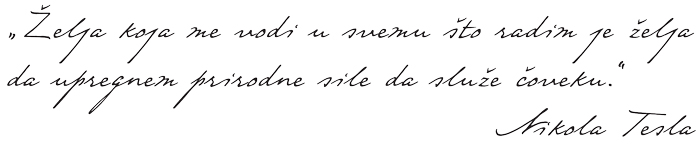 „Želja koja me vodi u svemu što radim je želja
da upregnem prirodne sile da služe čoveku.“
Nikola Tesla